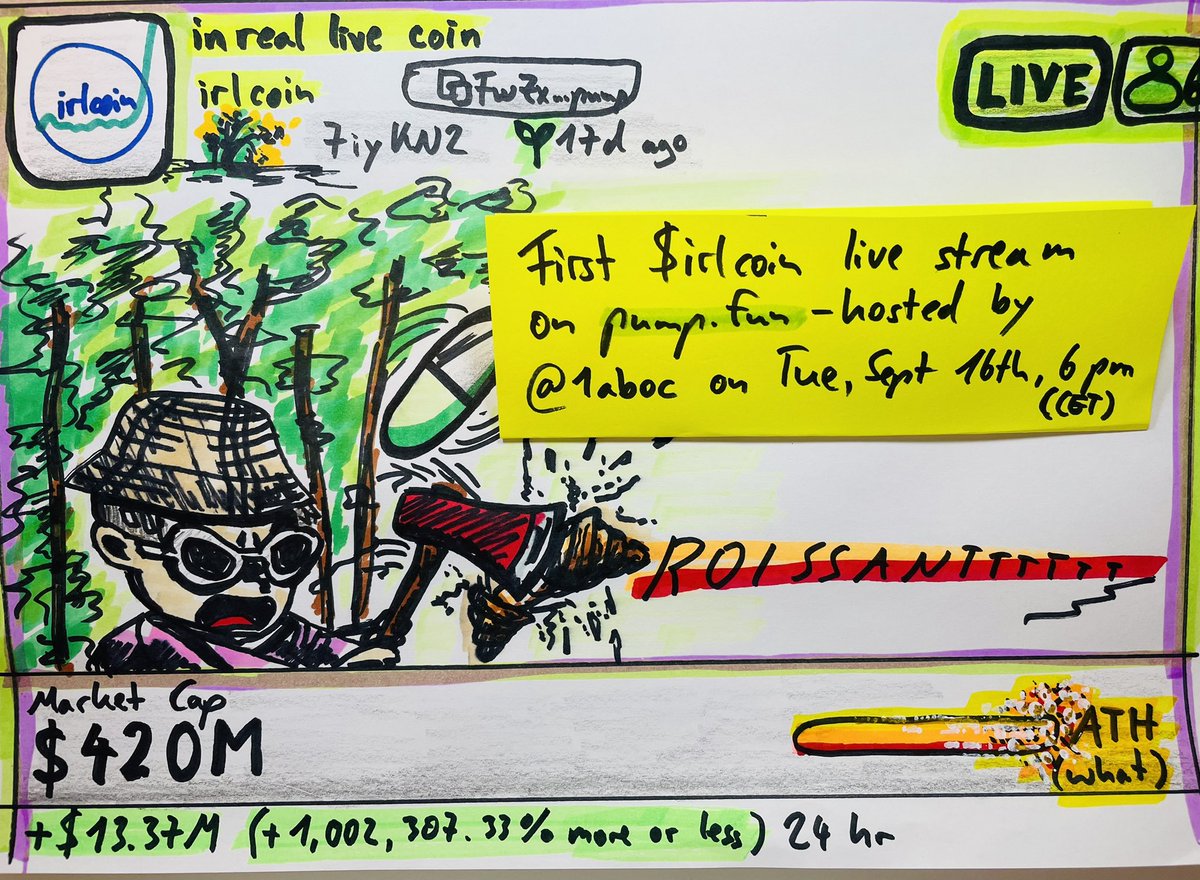 in real live coin
irlcoin
irlcoin
7iyKN2
17d ago
LIVE
First $irlcoin live stream
on pump.fun – hosted by
@1aboc on Tue, Sept 16th, 6 pm
(CET)
ROISSANTTTTTT
Market Cap
$420M
ATH
(what)
+$13.37M (+1,002,307.33% more or less) 24 hr